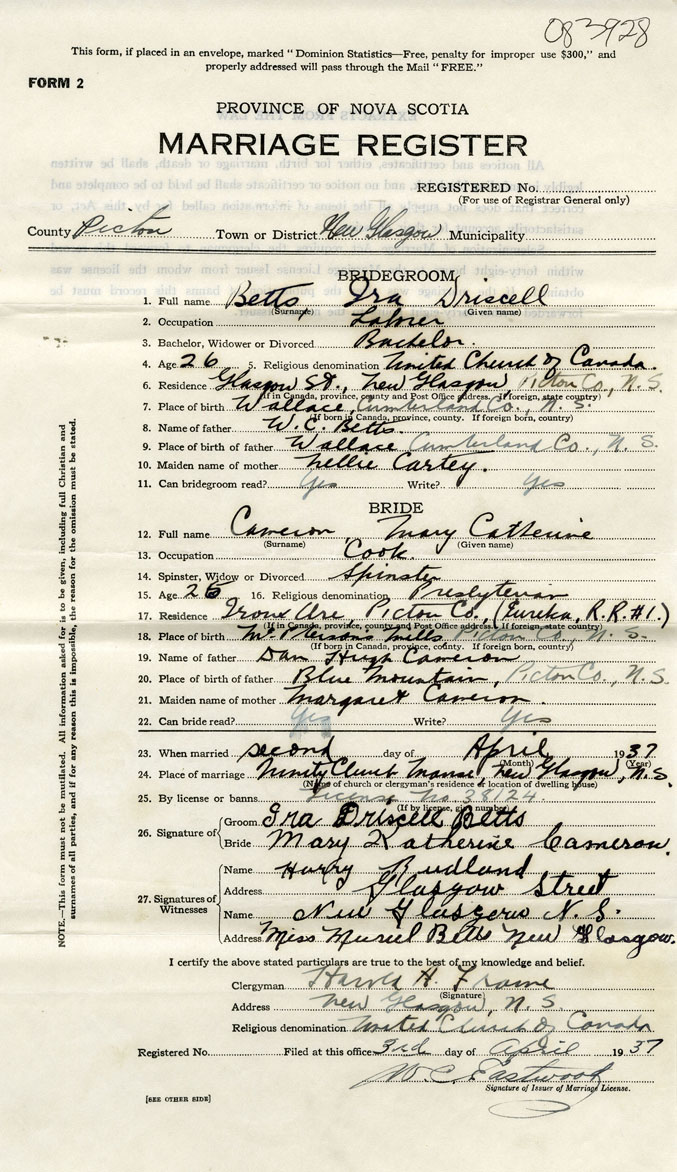 083928
This form, if placed in an envelope, marked "Dominion Statistics—Free, penalty for improper use $300," and
properly addressed will pass through the Mail "FREE."
FORM 2
PROVINCE OF NOVA SCOTIA
MARRIAGE REGISTER
REGISTERED No.
(For use of Registrar General only)
County Pictou Town or District New Glasgow Municipality
BRIDEGROOM
1. Full name Betts, Ira Driscell
(Surname) (Given name)
2. Occupation Laborer
3. Bachelor, Widower or Divorced Bachelor.
4. Age 26 5. Religious denomination United Church of Canada.
6. Residence Glasgow St., New Glasgow Pictou Co., N. S.
(If in Canada, province, county and Post Office address. If foreign, state country)
7. Place of birth Wallace, Cumberland Co., N. S.
(If born in Canada, province, county. If foreign born, country)
8. Name of father W. C. Betts.
9. Place of birth of father Wallace Cumberland Co., N. S.
10. Maiden name of mother Nellie Cartey.
11. Can bridegroom read? Yes Write? Yes
BRIDE
12. Full name Cameron, Mary Catherine
(Surname) (Given name)
13. Occupation Cook.
14. Spinster, Widow or Divorced Spinster
15. Age 26 16. Religious denomination Presbyterian
17. Residence Iron Ore, Pictou Co., (Eureka, R.R.#1.)
(If in Canada, province, county and Post Office address. If foreign, state country)
18. Place of birth McPhersons Mills Pictou Co., N. S.
(If born in Canada, province, county. If foreign born, country)
19. Name of father Dan Hugh Cameron
20. Place of birth of father Blue Mountain, Pictou Co., N.S.
21. Maiden name of mother Margaret Cameron.
22. Can bride read? Yes Write? Yes
23. When married second day of April 1937
(Month) (Year)
24. Place of marriage Trinity Church Manse, New Glasgow, N.S.
(Name of church or clergyman's residence or location of dwelling house)
25. By license or banns License No. 38124
(If by license, give number)
26. Signature of Groom Ira Driscell Betts
Bride Mary Katherine Cameron.
27. Signatures of Witnesses
Name Harry Budland
Address Glasgow Street
Name New Glasgow N. S.
Address Miss Muriel Betts New Glasgow.
I certify the above stated particulars are true to the best of my knowledge and belief.
Clergyman Harold H. Frame
(Signature)
Address New Glasgow, N. S.
Religious denomination United Church of Canada
Registered No. Filed at this office 3rd day of April 1937
W. C. Eastwood
Signature of Issuer of Marriage License.
[SEE OTHER SIDE]
NOTE.—This form must not be mutilated. All information asked for is to be given, including full Christian and
surnames of all parties, and if for any reason this is impossible, the reason for the omission must be stated.